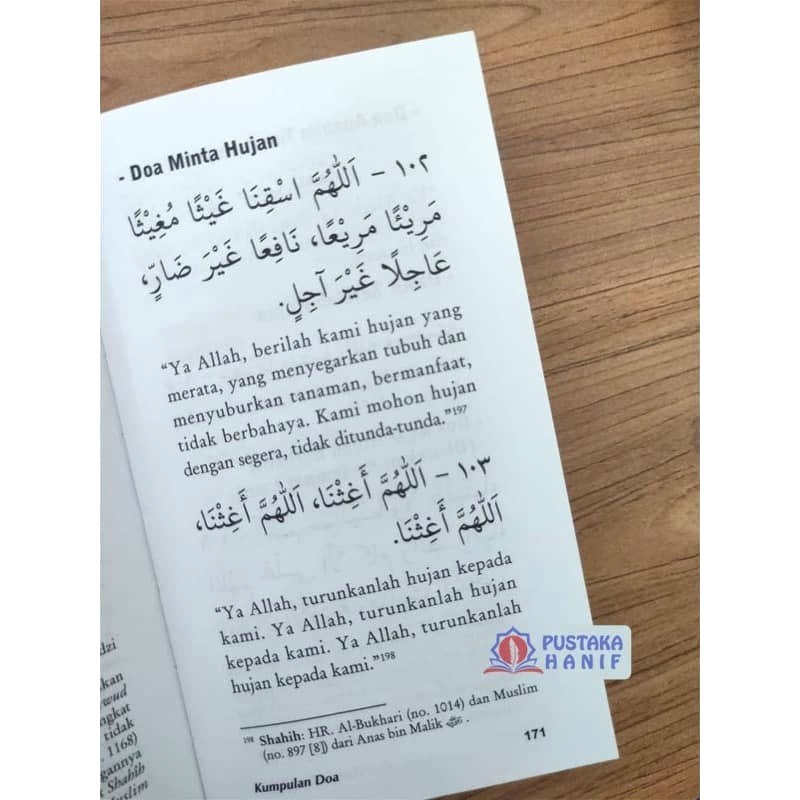 - Doa Minta Hujan
١٠٢ - اَللّٰهُمَّ اسْقِنَا غَيْثًا مُغِيْثًا
مَرِيْئًا مَرِيْعًا، نَافِعًا غَيْرَ ضَارٍّ،
عَاجِلًا غَيْرَ آجِلٍ.
“Ya Allah, berilah kami hujan yang
merata, yang menyegarkan tubuh dan
menyuburkan tanaman, bermanfaat,
tidak berbahaya. Kami mohon hujan
dengan segera, tidak ditunda-tunda.”197
١٠٣ - اَللّٰهُمَّ أَغِثْنَا، اَللّٰهُمَّ أَغِثْنَا،
اَللّٰهُمَّ أَغِثْنَا.
“Ya Allah, turunkanlah hujan kepada
kami. Ya Allah, turunkanlah hujan
kepada kami. Ya Allah, turunkanlah
hujan kepada kami.”198
198 Shahih: HR. Al-Bukhari (no. 1014) dan Muslim
(no. 897 [8]) dari Anas bin Malik ﷺ.
Kumpulan Doa
171
PUSTAKA
HANIF
dzi
kan
wud
ngkat
tidak
. 1168)
gannya
Shahih
uslim